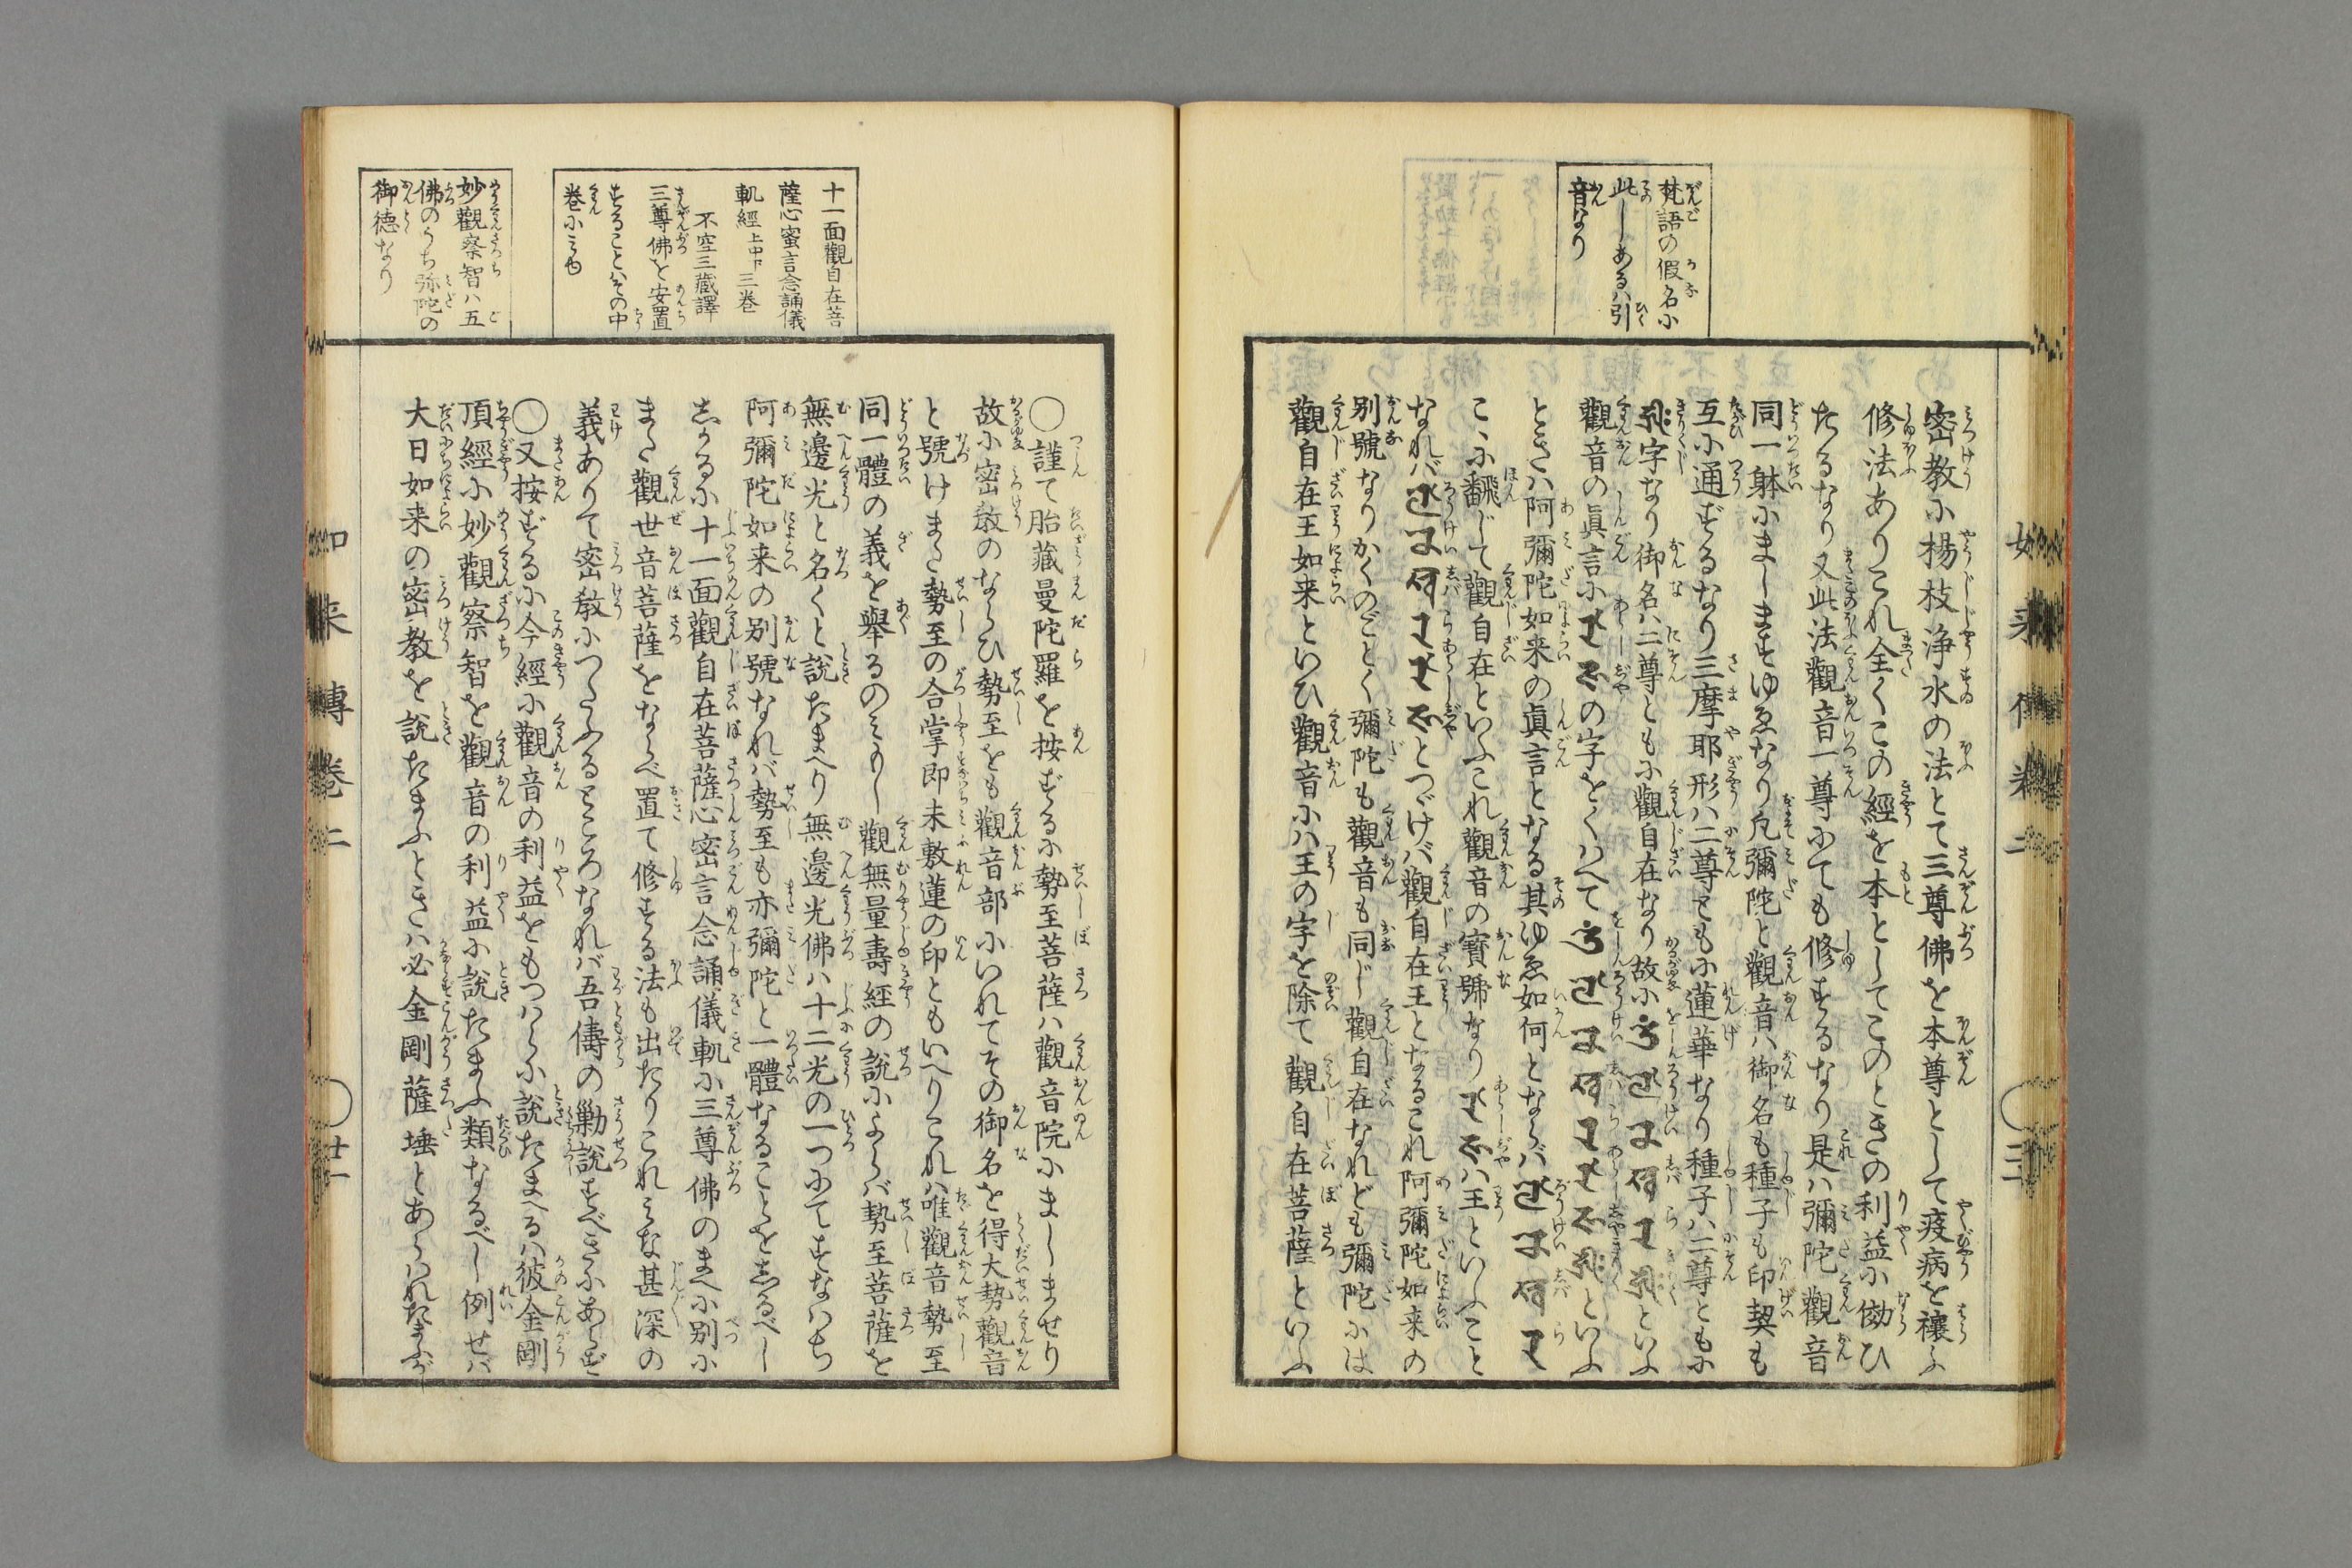 梵語の假名小
此ーあるハ引
音なり
密教小楊枝浄水の法とて三尊佛を本尊として疫病を禳ふ
修法ありこれ全くこの經を本としてこのときの利益小傚ひ
たるなり又此法觀音一尊ふても修するなり是ハ彌陀觀音
同一躰小ましますゆゑなり凡彌陀と觀音ハ御名も種子も印契も
互小通ずるなり三摩耶形ハ二尊とも小蓮華なり種子ハ二尊とも小
字なり御名ハ二尊とも小觀自在なり故小
といふ
觀音の眞言小
の字をくハへて
といふ
ときハ阿彌陀如来の眞言となる其ゆゑ如何とならバ
こゝ小飜じて觀自在といふこれ觀音の寳號なり
ハ王といふこと
なれバ
とつゞけバ觀自在王となるこれ阿彌陀如来の
別號なりかくのごとく彌陀も觀音も同じ觀自在なれども彌陀小は
觀自在王如来といひ觀音小ハ王の字を除て觀自在菩薩といふ
如来傳巻二
三
十一面觀自在菩
薩心蜜言念誦儀
軌經上中下三巻
不空三藏譯
三尊佛を安置
することハその中
巻小みゆ
妙觀察智ハ五
佛のうち弥陀の
御徳なり
〇謹て胎藏曼陀羅を按ずる小勢至菩薩ハ觀音院小ましませり
故小密教のならひ勢至をも觀音部小いれてその御名を得大勢觀音
と號けまた勢至の合掌即未敷蓮の印ともいへりこれハ唯觀音勢至
同一體の義を舉るのみもし觀無量壽經の說小よらバ勢至菩薩を
無邊光と名くと說たまへり無邊光佛ハ十二光の一つふてすなハち
阿彌陀如来の別號なれバ勢至も亦彌陀と一體なることをしるべし
しかる小十一面觀自在菩薩心密言念誦儀軌小三尊佛のまへ小別小
また觀世音菩薩をならべ置て修する法も出たりこれみな甚深の
義ありて密教小つたふるところなれバ吾儔の勦説すべき小あらず
〇又按ずる小今經小觀音の利益をもつハら小說たまへるハ彼金剛
頂經小妙觀察智を觀音の利益小說たまふ類なるべし例せバ
大日如来の密教を說たまふときハ必金剛薩埵とあらハれたまふが
如来傳巻二